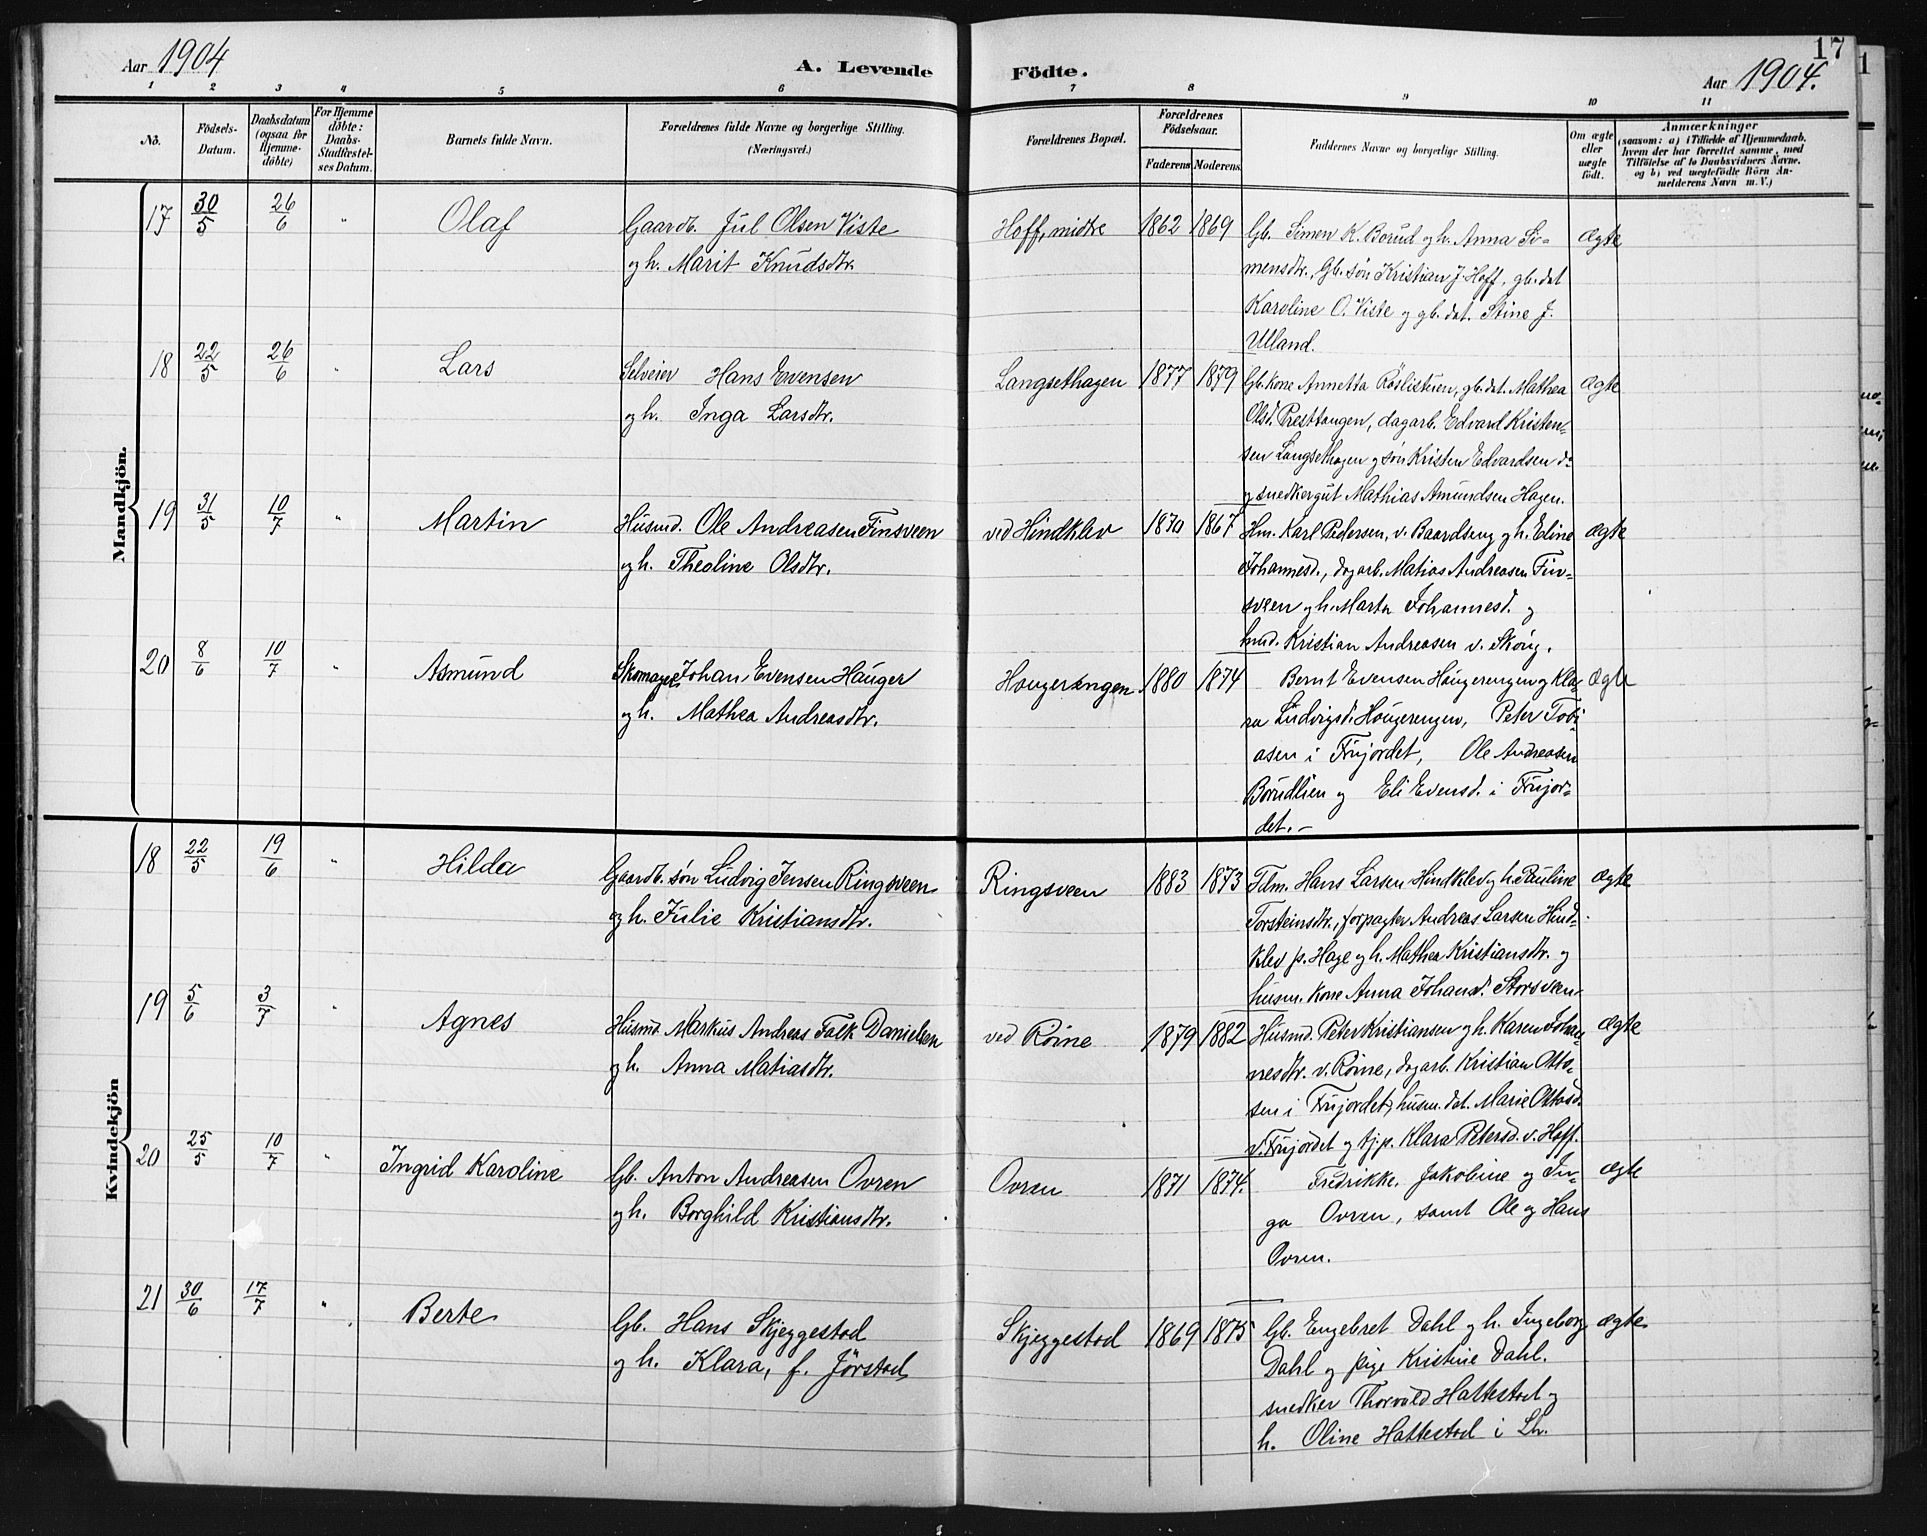 Aar 1904
A. Levende Födte.
Aar 1904.
17
1 2 3 4 5 6 7 8 9 10 11
No.
Födsels-Datum.
Daabsdatum (ogsaa for Hjemmedöbte)
For Hjemmedöbte: Daabs-Stadfæstelses Datum.
Barnets fulde Navn.
Forældrenes fulde Navne og borgerlige Stilling.
(Næringsvei.)
Forældrenes Bopæl.
Forældrenes Födselsaar.
Faderens Moderens
Faddernes Navne og borgerlige Stilling.
Om ægte eller uægte födt.
Anmærkninger
(saasom: a) i Tilfælde af Hjemmedaab, hvem der har forrettet samme, med Tilföielse af to Daabsvidners Navne, og b) ved uægtefödte Börn Anmelderens Navn m. V.)
Mandkjön.
17 30/5 26/6 " Olaf
Gaardb. Jul Olsen Viste
og h. Marit Knudsdtr.
Hoff, midtre 1862 1869
Gb. Simen K. Borud og h. Anna Si-
mensdtr., Gb. søn Kristian J. Hoff, gb. dat
Karoline O. Viste og gb. dat. Stine J.
Ulland.
Ægte
18 22/5 26/6 " Lars
Selveier Hans Evensen
og h. Inga Larsdtr.
Langsethagen 1877 1879
Gb. kone Annetta Röslistuen, gb. dat. Mathea
Olsd. Presttangen, dagarb. Edvard Kristen-
sen Langsethagen og søn Kristen Edvardsen do
og snedkergut Mathias Amundsen Hagen.
Ægte
19 31/5 10/7 " Martin
Husmd. Ole Andreasen Finsveen
og h. Theoline Olsdtr.
ved Hindklev 1870 1867
Hm. Karl Pedersen, v. Baardseng og h. Edine
Johannesd., dagarb. Matias Andreasen Fin-
sveen og h. Marta Johannesd. og
hmd. Kristian Andreasen v. Skóug.
Ægte
20 8/6 10/7 " Asmund
Skomager Johan Evensen Hauger
og h. Mathea Andreasdtr.
Hougerengen 1880 1874
Bernt Evensen Hougerengen og Kla-
ra Ludvigsd. Hougerengen, Peter Tobi-
asen i Frujordet, Ole Andreasen
Borudlien og Eli Evensd. i Frujor-
det. -
Ægte
Kvindekjön
18 22/5 19/6 " Hilda
Gaardb. søn Ludvig Jensen Ringsveen
og h. Julie Kristiansdtr.
Ringsveen 1883 1873
Fdm. Hans Larsen Hindklev og h. Pauline
Torsteinsdtr., forpagter Andreas Larsen Hind-
klev p. Hage og h. Mathea Kristiansdtr. og
husm. kone Anna Johansd. Storsveen
Ægte
19 5/6 3/7 " Agnes
Husmd. Markus Andreas Falk Danielsen
og h. Anna Matiasdtr.
ved Röine 1879 1882
Husmd. Peter Kristiansen og h. Karen Johan-
nesdtr. v. Röine, dagarb. Kristian Otto-
sen i Frujordet, husm. dat. Marie Ottosd.
v. Frujordet og tj. p. Klara Petersd. v. Hoff.
Ægte
20 25/5 10/7 " Ingrid Karoline
Gb. Anton Andreasen Ovren
og h. Borghild Kristiansdtr.
Ovren 1871 1874.
Fredrikke, Jakobine og In-
ga Ovren, samt Ole og Hans
Ovren.
Ægte
21 30/6 17/7 " Berte
Gb. Hans Skjeggestad
og h. Klara, f. Jörstad
Skjeggestad 1869 1875
Gb. Engebret Dahl og h. Ingeborg
Dahl og pige Kristine Dahl.
snedker Thorvald Hattestad og
h. Oline Hattestad i Lh.
Ægte